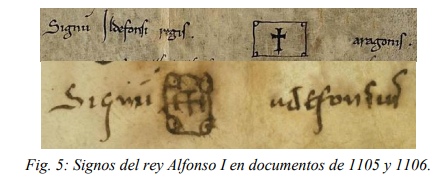 Signū Ildefonsi regis. aragonis.
Signū ildefonsus
Fig. 5: Signos del rey Alfonso I en documentos de 1105 y 1106.